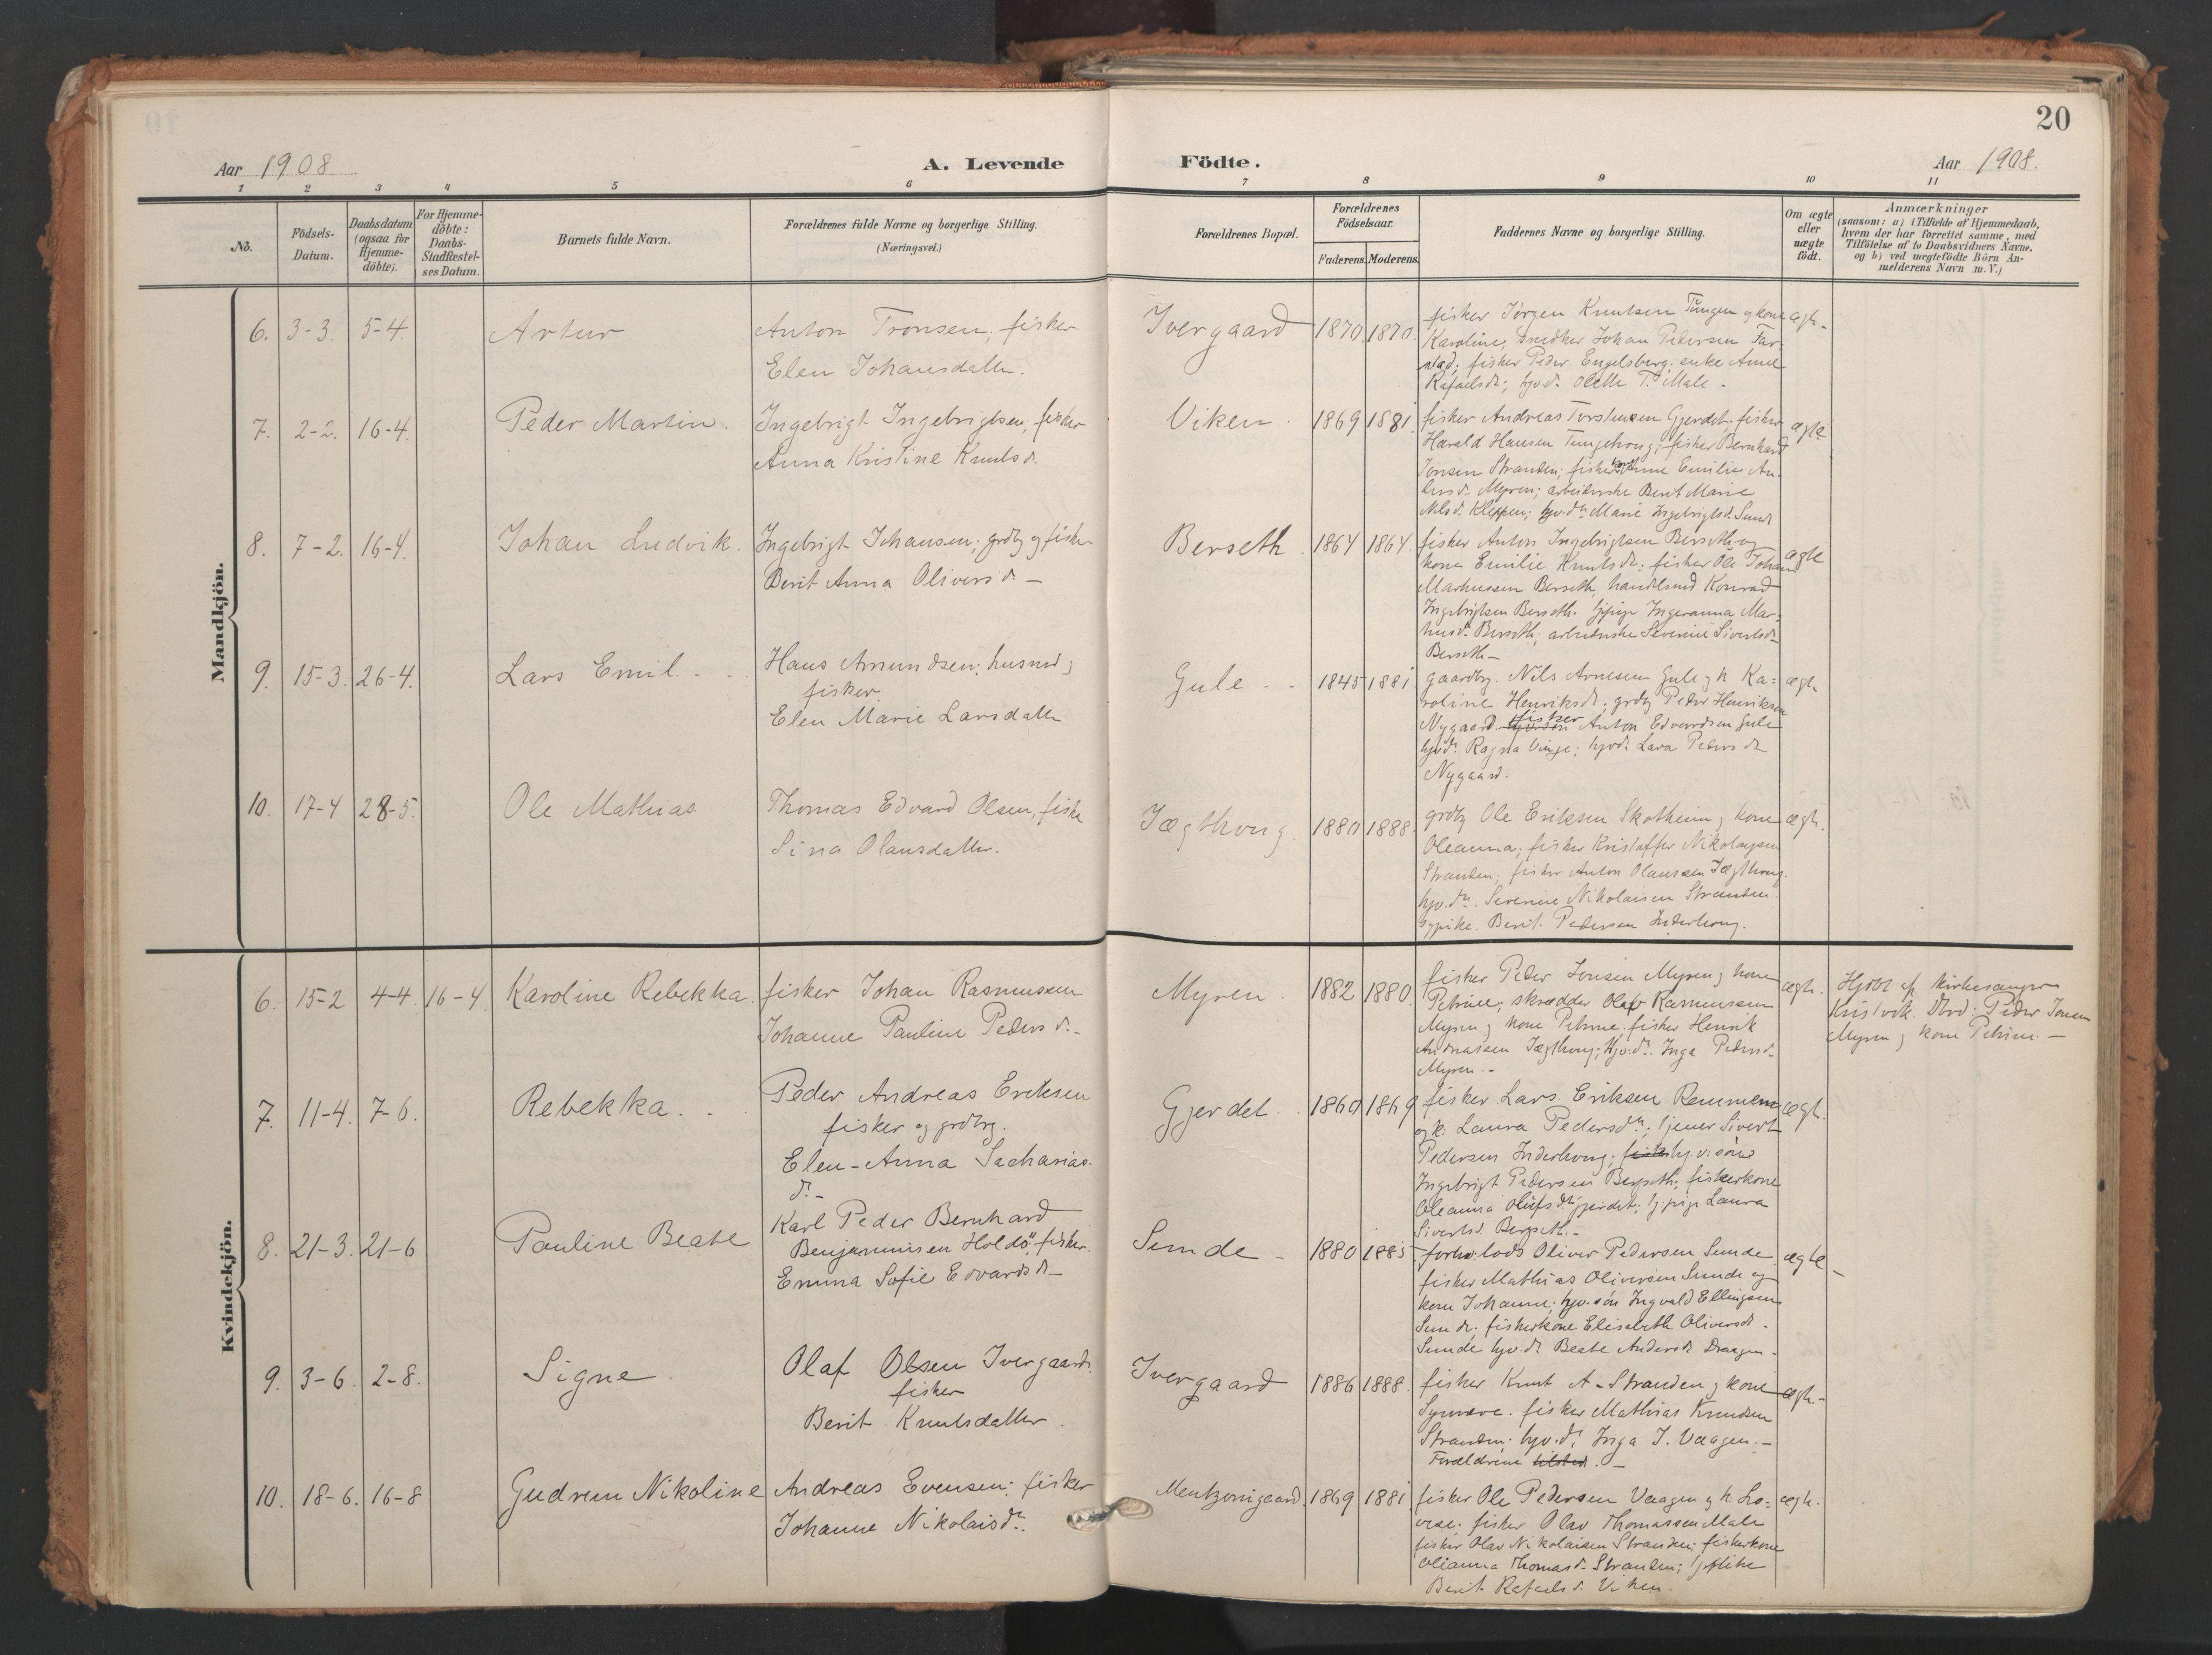 20
Aar 1908
A. Levende
Födte.
Aar 1908.
1 2 3 4 5 6 7 8 9 10 11
No.
Födsels-
Datum.
Daabsdatum
(ogsaa for
Hjemme-
döbte).
For Hjemme-
döbte:
Daabs-
Stadfæstel-
ses Datum.
Barnets fulde Navn.
Forældrenes fulde Navne og borgerlige Stilling.
(Næringsvei.)
Forældrenes Bopæl.
Forældrenes
Födselsaar.
Faderens. Moderens.
Faddernes Navne og borgerlige Stilling.
Om ægte
eller
uægte
födt.
Anmærkninger
(saasom: a) i Tilfælde af Hjemmedaab,
hvem der har forrettet samme, med
Tilföielse af to Daabsvidners Navne,
og b) ved uægtefödte Börn An-
melderens Navn m. V.)
Mandkjön.
6. 3-3. 5-4. Artur
Anton Tronsen, fisker
Elen Johansdatter.
Ivergaard 1870. 1870.
fisker Jørgen Knutsen Tungen og kone
Karoline, snedker Johan Pedersen Far-
stad; fisker Peder Engelsberg; enke Anne
Rafaelsdr; Male.
7. 2-2. 16-4. Peder Martin.
Ingebrigt Ingebrigtsen, fisker
Anna Kristine Knutsdr.
Viken. 1869 1881.
fisker Andreas Torstensen Gjerdet, fisker
Harald Hansen Tungehoug; fisker Bernhard
Jonsen Stranden; Anne Emilie An-
dersdr. Myren; arbeiderske Berit Marie
Nilsdr. Kleppen; Marie Ingebrigtsdr. Sund
ægte
8. 7-2. 16-4. Johan Ludvik.
Ingebrigt Johansen; grdbg og fisker
Berit Anna Oliversdr. -
Berseth. 1864 1864.
fisker Anton Ingebrigtsen Berseth og
kone Emilie Knutsdr; fisker Ole Johan
Markussen Berseth, handelsmd Konrad
Ingebrigtsen Berseth. Ingeranna Mar-
kusdr. Berseth; arbeiderske Severine Sivertsdr.
Berseth -
ægte
9. 15-3. 26-4. Lars Emil.
Hans Amundsen; husmd,
fisker
Elen Marie Larsdatter
Gule - 1845 1881
gaardbrg. Nils Arnesen Gule og k Ka=
roline Henriksdr; grdbg Peder Henriksen
Nygaard. fisker Anton Edvardsen Gule
Ragna Vinje; Lava Pedersdr
Nygaard.
10. 17-4 28-5. Ole Mathias
Thomas Edvard Olsen, fisker
Sina Olausdatter.
Jægthoug. 1880 1888.
grdbg Ole Eriksen Skotheim og kone
Oleanna; fisker Kristoffer Nikolaysen
Stranden; fisker Anton Olaussen Jægthoug.
Severine Nikolaisen Stranden
Berit Pedersen Inderhoug.
Kvindekjön.
6. 15-2 4-4. 16-4 Karoline Rebekka.
fisker Johan Rasmussen
Johanne Pauline Pedersdr. -
Myren. 1882 1880.
fisker Peder Jonsen Myren og kone
Petrine; skrædder Olaf Rasmussen
Myren og kone Petrine. fisker Henrik
Andreassen Jægthoug; Inga Pedersdr.
Myren. -
Hjdbt af kirkesanger
Kristvik. Peder Jonsen
Myren og kone Petrine. -
7. 11-4. 7-6. Rebekka.
Peder Andreas Eriksen
fisker og grdbrg.
Elen-Anna Sacharias-
dr. -
Gjerdet. 1860 1869
fisker Lars Eriksen Remmem
og k. Laura Pedersdr; tjener Sivert
Pedersen Inderhoug; hjv. søn
Ingebrigt Pedersen Berseth; fiskerkone
Oleanna Olufsdtr Gjerdet; Laura
Sivertsd. Berseth. -
8. 21-3. 21-6 Pauline Beate
Karl Peder Bernhard
Benjaminsen Holdö, fisker.
Emma Sofie Edvardsdr -
Sunde - 1880 1885
lods Oliver Pedersen Sunde
fisker Mathias Oliversen Sunde og
kone Johanne; hjv. søn Ingvald Ellingsen
Sunde; fiskerkone Elisabeth Oliversdr.
Sunde Beate Andersdr Draagen -
ægte -
9. 3-6. 2-8. Signe.
Olaf Olsen Ivergaard.
fisker
Berit Knutsdatter.
Ivergaard 1886 1888.
fisker Knut A. Stranden og kone
Synnøve. fisker Mathias Knudsen
Stranden; Inga J. Vaagen. -
Forældrene
10. 18-6. 16-8 Gudrun Nikoline
Andreas Evensen; fisker
Johanne Nikolaisdtr.
Mentzonigaard. 1869 1881.
fisker Ole Pedersen Vaagen og k. Lo=
vise; fisker Olav Thomassen Male
fisker Olav Nikolaisen Stranden; fiskerkone
Olianna Thomasdr. Stranden;
Berit Rafaelsdr. Viken.